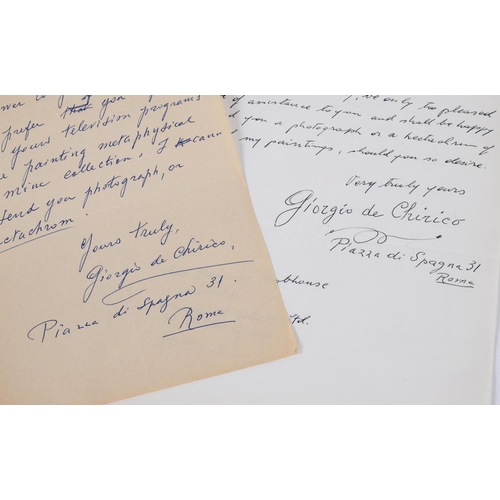 prefer that you
yours television programs
painting metaphysical
mine collection. I cann
send your photograph, or
ectachrom.
Yours truly,
Giorgio de Chirico,
Piazza di Spagna 31.
Roma
only too pleased
of assistance to you and shall be happy
you a photograph or a hectachrom of
my paintings, should you so desire.
Very truly yours
Giorgio de Chirico
Piazza di Spagna 31
Roma
house
Ltd.